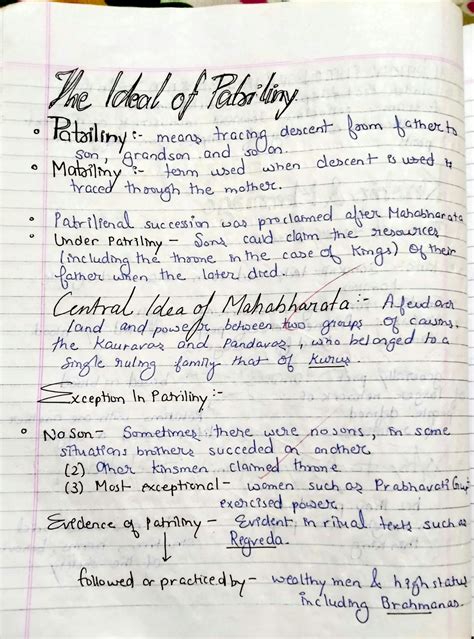 The Ideal of Patriliny
Patriliny :- means tracing descent from father to
son, grandson and so on.
Matriliny :- term used when descent is used to
traced through the mother.
Patrilienal succession was proclaimed after Mahabharata
Under Patrilny - Sons could claim the resources
(including the throne in the case of Kings) of their
father when the later died.
Central Idea of Mahabharata :- A feud over
land and power between two groups of cousins,
the Kauravas and Pandavas, who belonged to a
single ruling family that of Kurus.
Exception In Patriliny :-
No son - Sometimes there were no sons, in some
situations brothers succeded on another
(2) Other kinsmen claimed throne
(3) Most exceptional - women such as Prabhavati
exercised power.
Evidence of Patrilny - Evident in ritual texts such as
Regveda.
followed or practiced by - wealthy men & high status
including Brahmanas.